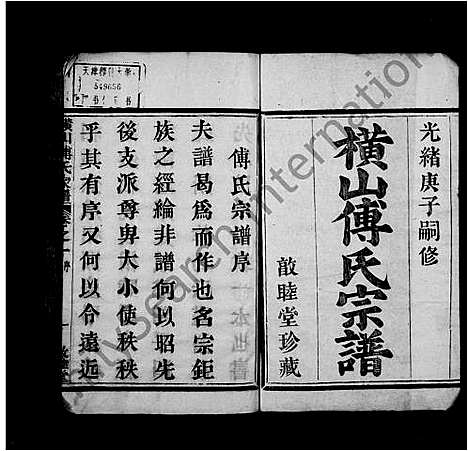 光緒庚子嗣修
橫山傅氏宗譜
敦睦堂珍藏
傅氏宗譜序
夫譜曷為而作也名宗鉅
族之經綸非譜何以昭先
後支派尊卑大小使秩秩
乎其有序又何以令遠近
549656